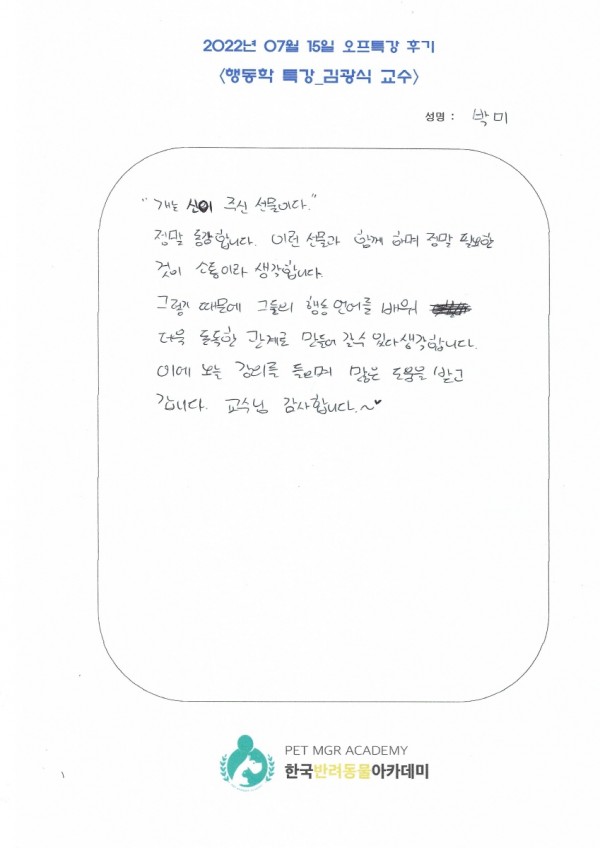 2022년 07월 15일 오프특강 후기
<행동학 특강_김광식 교수>
성명 : 박미
"개는 신이 주신 선물이다."
정말 동감합니다. 이런 선물과 함께 하며 정말 필요한
것이 소통이라 생각합니다.
그렇기 때문에 그들의 행동언어를 배워
더욱 돈독한 관계로 만들어 갈수 있다 생각합니다.
이에 오늘 강의를 들으며 많은 도움을 받고
갑니다. 교수님 감사합니다.~♥
PET MGR ACADEMY
한국반려동물아카데미